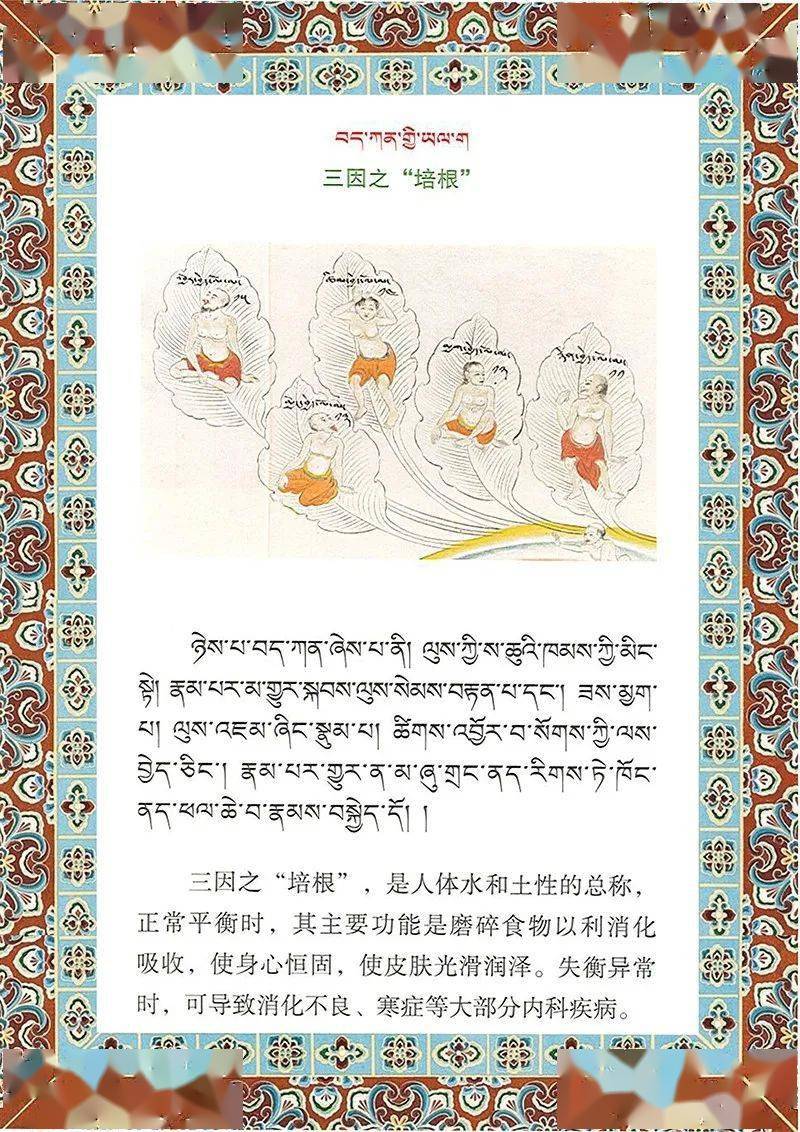 བད་ཀན་གྱི་ཡལ་ག
三因之“培根”
ཉེས་པ་བད་ཀན་ཞེས་པ་ནི། ལུས་ཀྱི་ས་ཆུའི་ཁམས་ཀྱི་མིང་
སྟེ། རྣམ་པར་མ་གྱུར་སྐབས་ལུས་སེམས་བརྟན་པ་དང་། ཟས་མྱག་
པ། ལུས་འཇམ་ཞིང་སྣུམ་པ། ཚིགས་འབྱོར་བ་སོགས་ཀྱི་ལས་
བྱེད་ཅིང་། རྣམ་པར་གྱུར་ན་མ་ཞུ་གྲང་ནད་རིགས་ཏེ་ཁོང་
ནད་ཕལ་ཆེ་བ་རྣམས་བསྐྱེད་དོ། །
三因之“培根”，是人体水和土性的总称，
正常平衡时，其主要功能是磨碎食物以利消化
吸收，使身心恒固，使皮肤光滑润泽。失衡异常
时，可导致消化不良、寒症等大部分内科疾病。